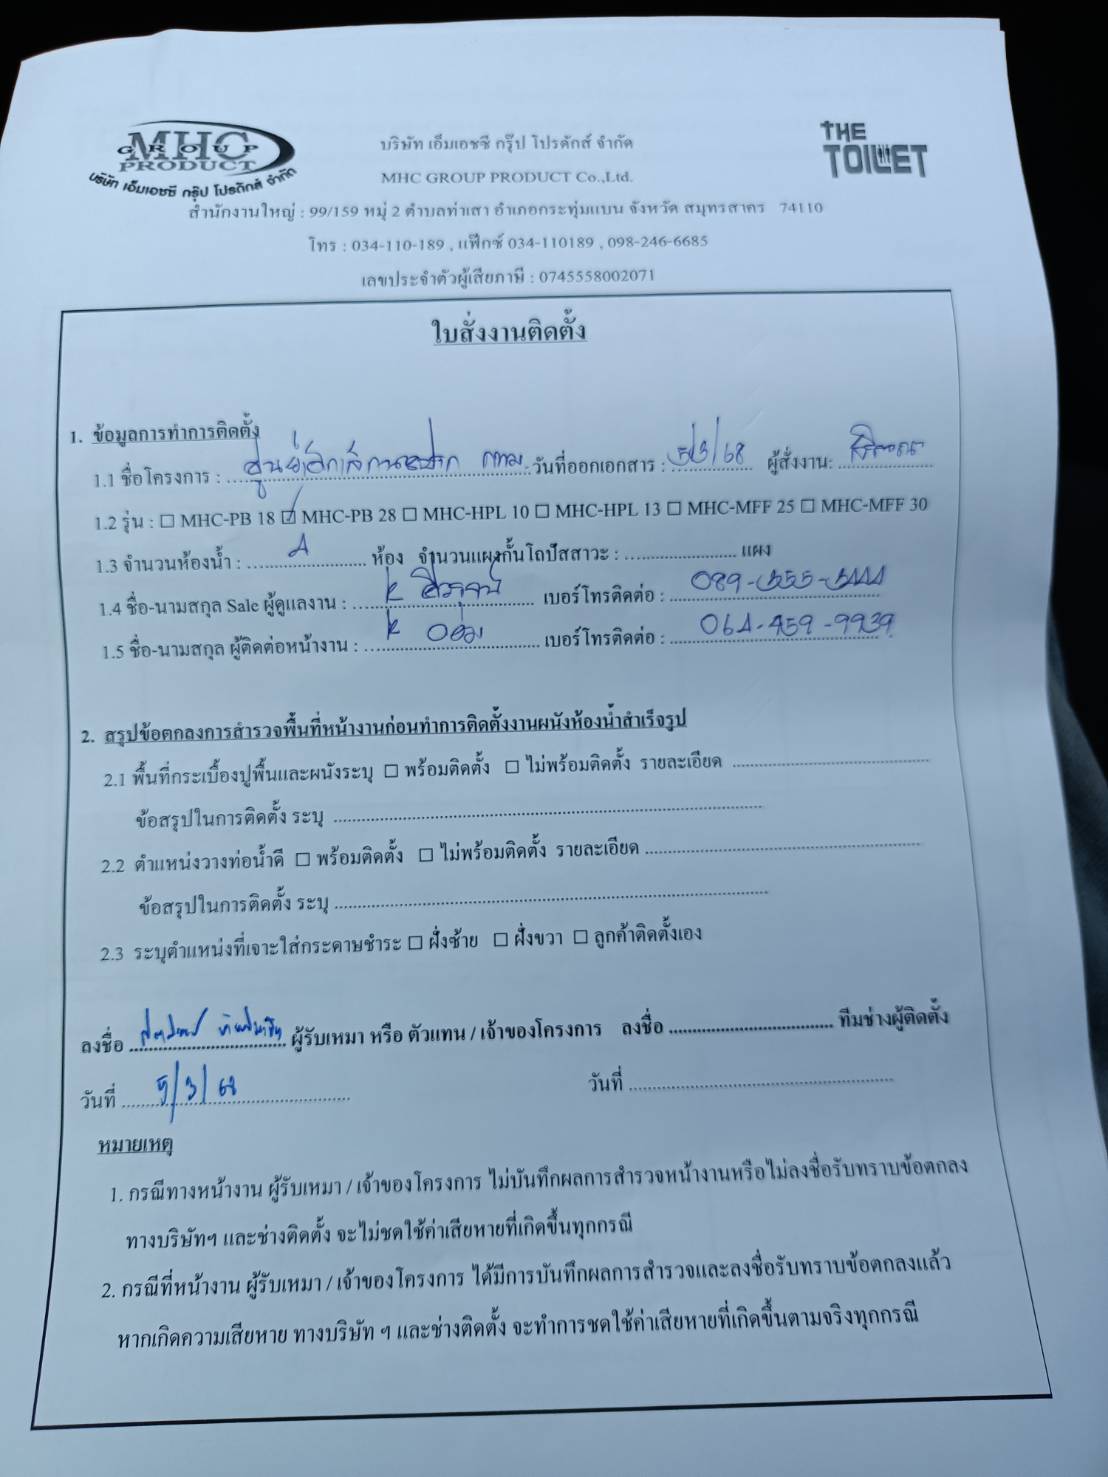 MHC
GROUP
PRODUCT
บริษัท เอ็มเอชซี กรุ๊ป โปรดักส์ จำกัด
THE
TOILET
บริษัท เอ็มเอชซี กรุ๊ป โปรดักส์ จำกัด
MHC GROUP PRODUCT Co.,Ltd.
สำนักงานใหญ่ : 99/159 หมู่ 2 ตำบลท่าเสา อำเภอกระทุ่มแบน จังหวัด สมุทรสาคร 74110
โทร : 034-110-189 , แฟ็กซ์ 034-110189 , 098-246-6685
เลขประจำตัวผู้เสียภาษี : 0745558002071
ใบสั่งงานติดตั้ง
1. ข้อมูลการทำการติดตั้ง
1.1 ชื่อโครงการ : กทม. วันที่ออกเอกสาร : 5/3/68 ผู้สั่งงาน:
1.2 รุ่น : ☐ MHC-PB 18 ☑ MHC-PB 28 ☐ MHC-HPL 10 ☐ MHC-HPL 13 ☐ MHC-MFF 25 ☐ MHC-MFF 30
1.3 จำนวนห้องน้ำ : 4 ห้อง จำนวนแผงกั้นโถปัสสาวะ : แผง
1.4 ชื่อ-นามสกุล Sale ผู้ดูแลงาน : K เบอร์โทรติดต่อ : 089-555-5444
1.5 ชื่อ-นามสกุล ผู้ติดต่อหน้างาน : K เบอร์โทรติดต่อ : 064-459-9939
2. สรุปข้อตกลงการสำรวจพื้นที่หน้างานก่อนทำการติดตั้งงานผนังห้องน้ำสำเร็จรูป
2.1 พื้นที่กระเบื้องปูพื้นและผนังระบุ ☐ พร้อมติดตั้ง ☐ ไม่พร้อมติดตั้ง รายละเอียด
ข้อสรุปในการติดตั้ง ระบุ
2.2 ตำแหน่งวางท่อน้ำดี ☐ พร้อมติดตั้ง ☐ ไม่พร้อมติดตั้ง รายละเอียด
ข้อสรุปในการติดตั้ง ระบุ
2.3 ระบุตำแหน่งที่เจาะใส่กระดาษชำระ ☐ ฝั่งซ้าย ☐ ฝั่งขวา ☐ ลูกค้าติดตั้งเอง
ลงชื่อ ผู้รับเหมา หรือ ตัวแทน / เจ้าของโครงการ ลงชื่อ ทีมช่างผู้ติดตั้ง
วันที่ 5/3/68 วันที่
หมายเหตุ
1. กรณีทางหน้างาน ผู้รับเหมา / เจ้าของโครงการ ไม่บันทึกผลการสำรวจหน้างานหรือไม่ลงชื่อรับทราบข้อตกลง
ทางบริษัทฯ และช่างติดตั้ง จะไม่ชดใช้ค่าเสียหายที่เกิดขึ้นทุกกรณี
2. กรณีที่หน้างาน ผู้รับเหมา / เจ้าของโครงการ ได้มีการบันทึกผลการสำรวจและลงชื่อรับทราบข้อตกลงแล้ว
หากเกิดความเสียหาย ทางบริษัท ฯ และช่างติดตั้ง จะทำการชดใช้ค่าเสียหายที่เกิดขึ้นตามจริงทุกกรณี